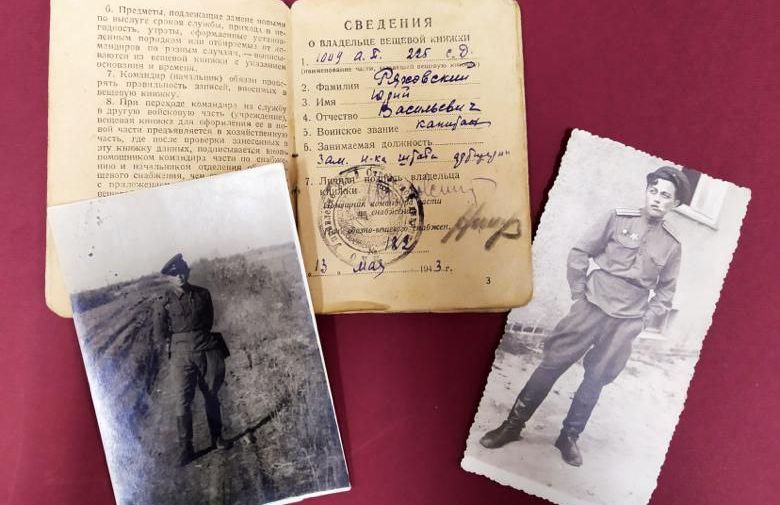 6. Предметы, подлежащие замене новыми
по выслуге сроков службы, приходе в не-
годность, утраты, оформленные установ-
ленным порядком или отбираемые от ко-
мандиров по разным случаям, — выписы-
ваются из вещевой книжки с указанием
основания и времени.
7. Командир (начальник) обязан прове-
рять правильность записей, вносимых в
вещевую книжку.
8. При переходе командира на службу
в другую войсковую часть (учреждение)
вещевая книжка для оформления ее в но-
вой части предъявляется в хозяйственную
часть, где после проверки занесенных в
эту книжку данных, подписывается
помощником командира части по снабже-
нию и начальником
щевого снабжения, чем
с приложением
СВЕДЕНИЯ
О ВЛАДЕЛЬЦЕ ВЕЩЕВОЙ КНИЖКИ
1. 1009 а.п. 225 с.д.
(наименование части, выдавшей вещевую книжку)
2. Фамилия Ряховский
3. Имя Юрий
4. Отчество Васильевич
5. Воинское звание капитан
6. Занимаемая должность
Зам. н-ка штаба
7. Личная подпись владельца
книжки
Помощник командира части
по снабжению
Нач. обозно-вещевого снабжен.
№ 122
13 мая 1943 г.
3